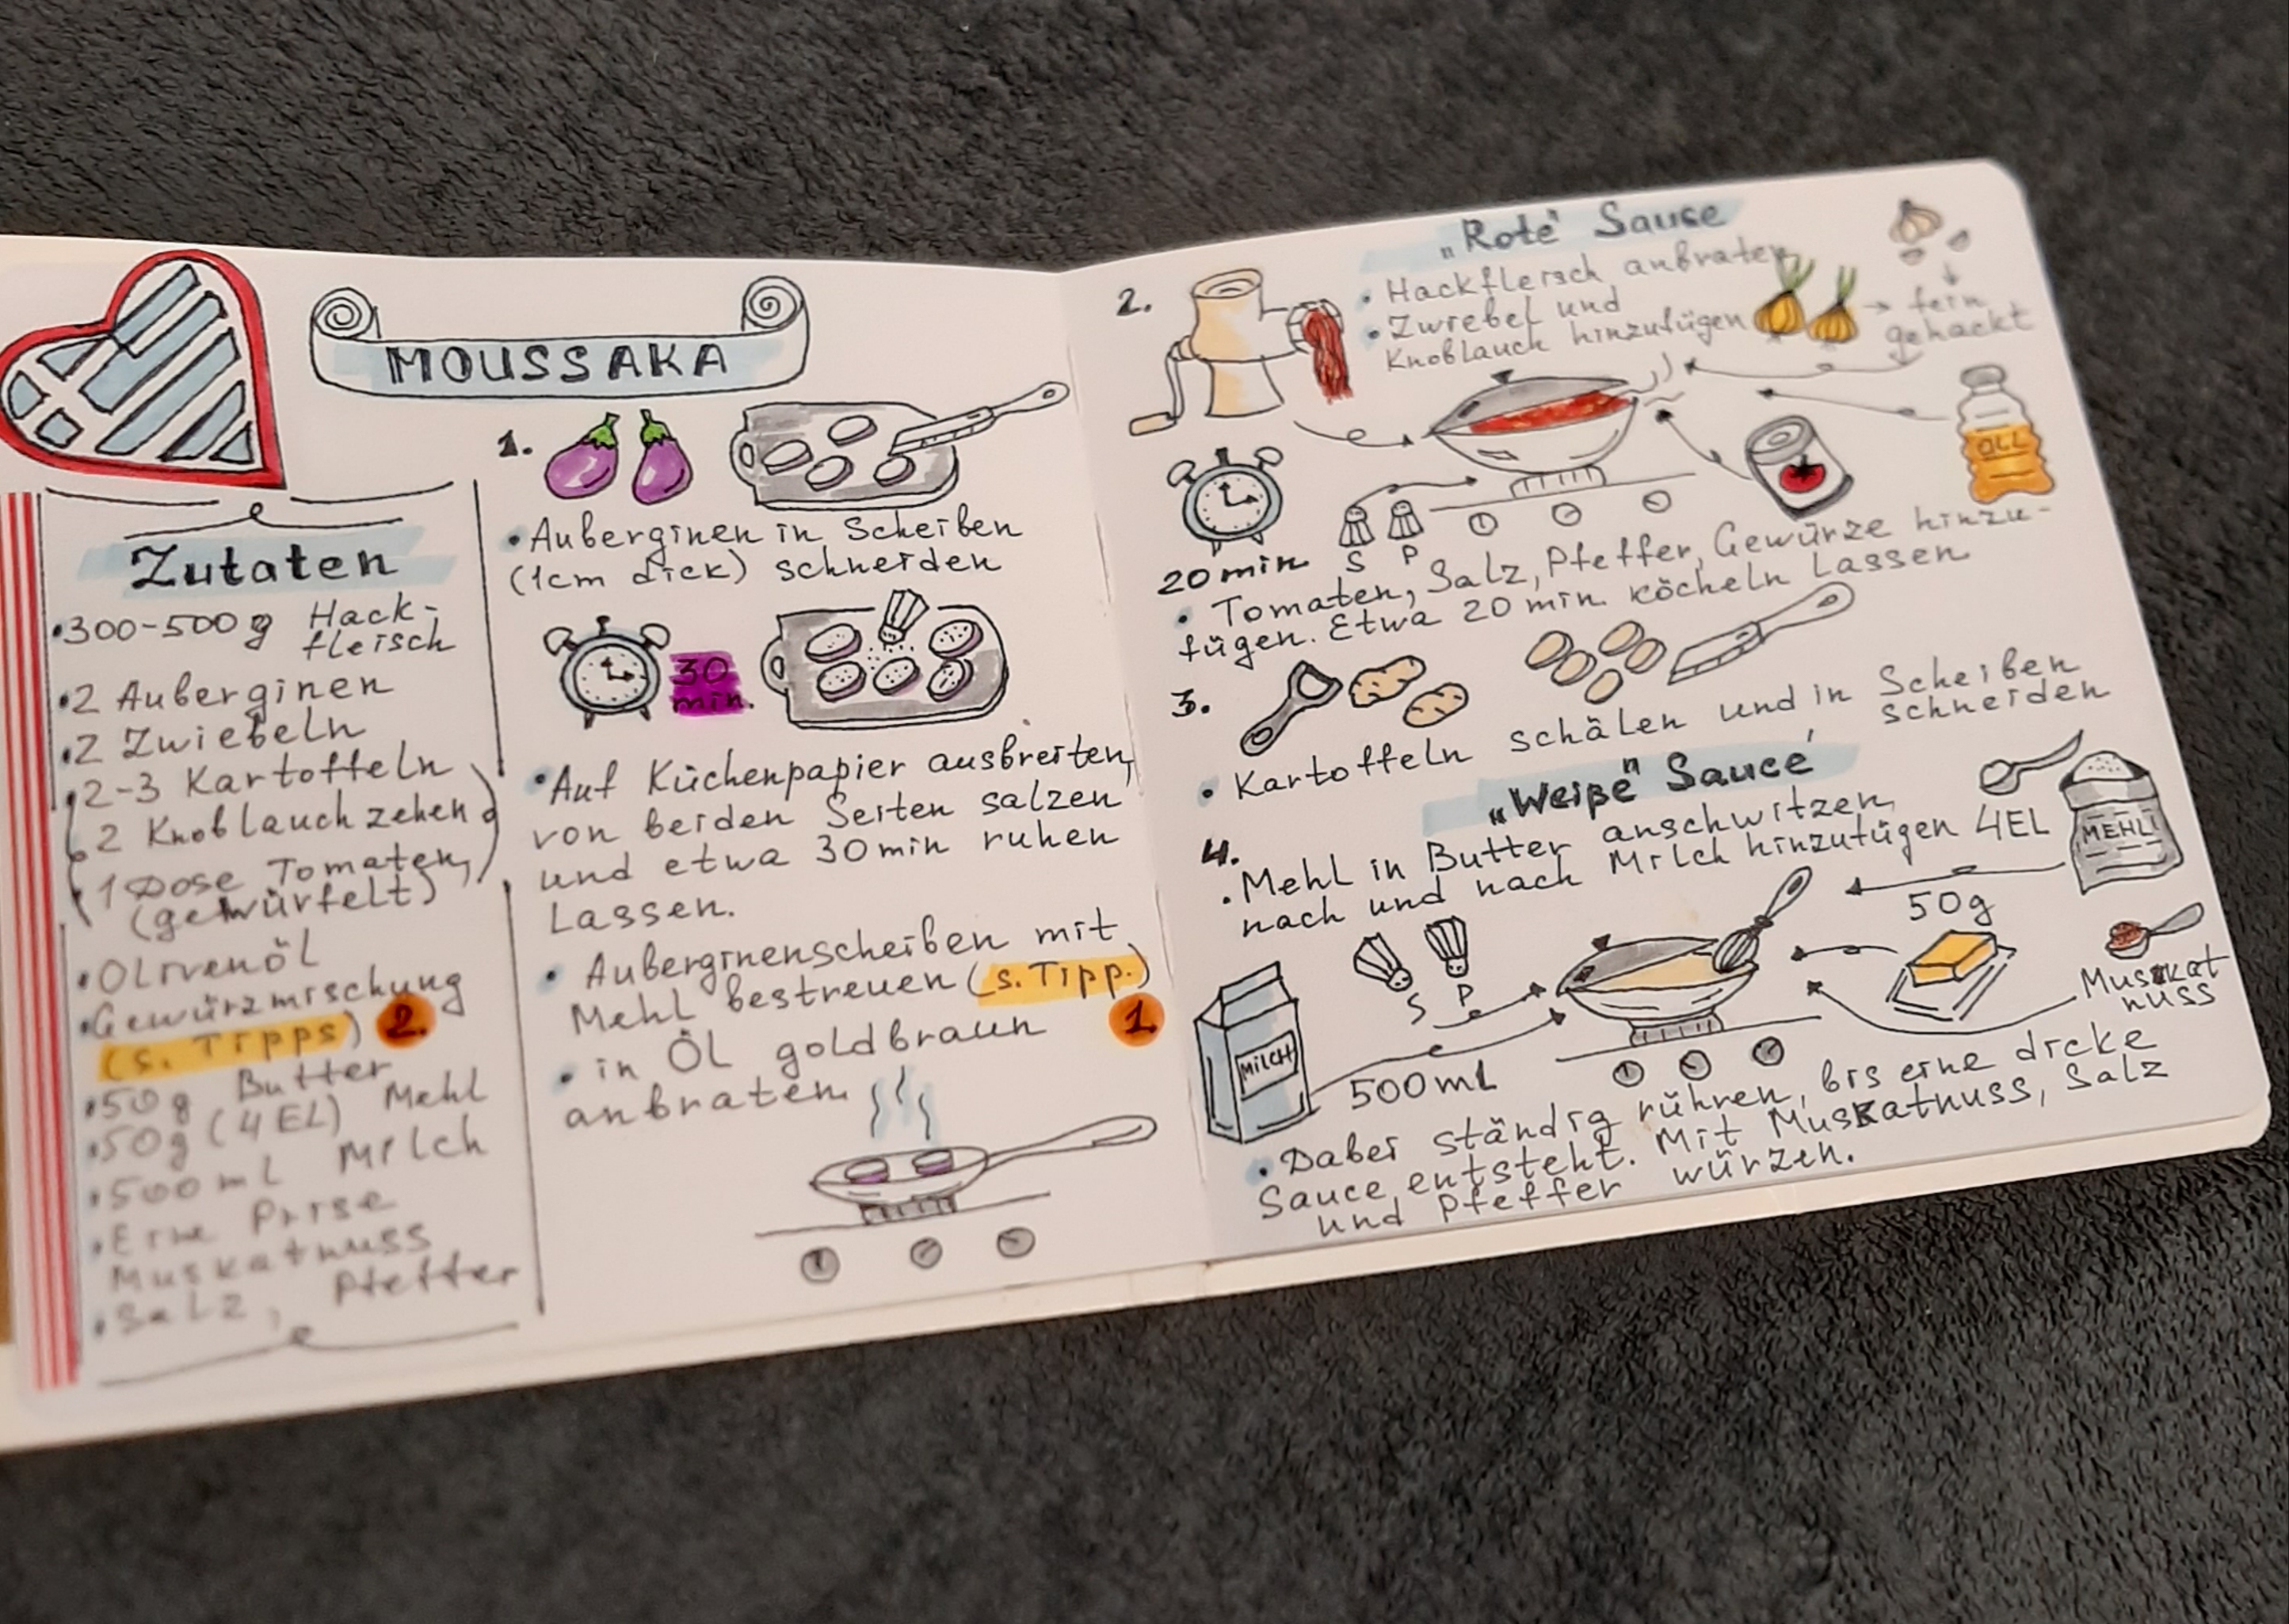 MOUSSAKA
Zutaten
•300-500g Hack-
fleisch
•2 Auberginen
•2 Zwiebeln
•2-3 Kartoffeln
•2 Knoblauchzehen
•1 Dose Tomaten,
(gewürfelt)
•Olivenöl
•Gewürzmischung
(s. Tipps) 2.
•50g Butter
•50g (4EL) Mehl
•500ml Milch
•Eine Prise
Muskatnuss
•Salz, Pfeffer
1.
•Auberginen in Scheiben
(1cm dick) schneiden
30
min.
•Auf Küchenpapier ausbreiten,
von beiden Seiten salzen
und etwa 30min ruhen
Lassen.
• Auberginenscheiben mit
Mehl bestreuen (s. Tipp.)
1.
• in Öl goldbraun
anbraten
2.
„Rote" Sauce
• Hackfleisch anbraten,
• Zwiebel und
Knoblauch hinzufügen
→ fein
gehackt
ÖLL
20min
S P
• Tomaten, Salz, Pfeffer, Gewürze hinzu-
fügen. Etwa 20 min. köcheln Lassen
3.
• Kartoffeln schälen und in Scheiben
schneiden
„Weiße" Sauce
4.
• Mehl in Butter anschwitzen,
nach und nach Milch hinzufügen
4EL
MEHL
50g
S P
Muskat
nuss
MiLCH
500mL
• Dabei ständig rühren, bis eine dicke
Sauce entsteht. Mit Muskatnuss, Salz
und Pfeffer würzen.